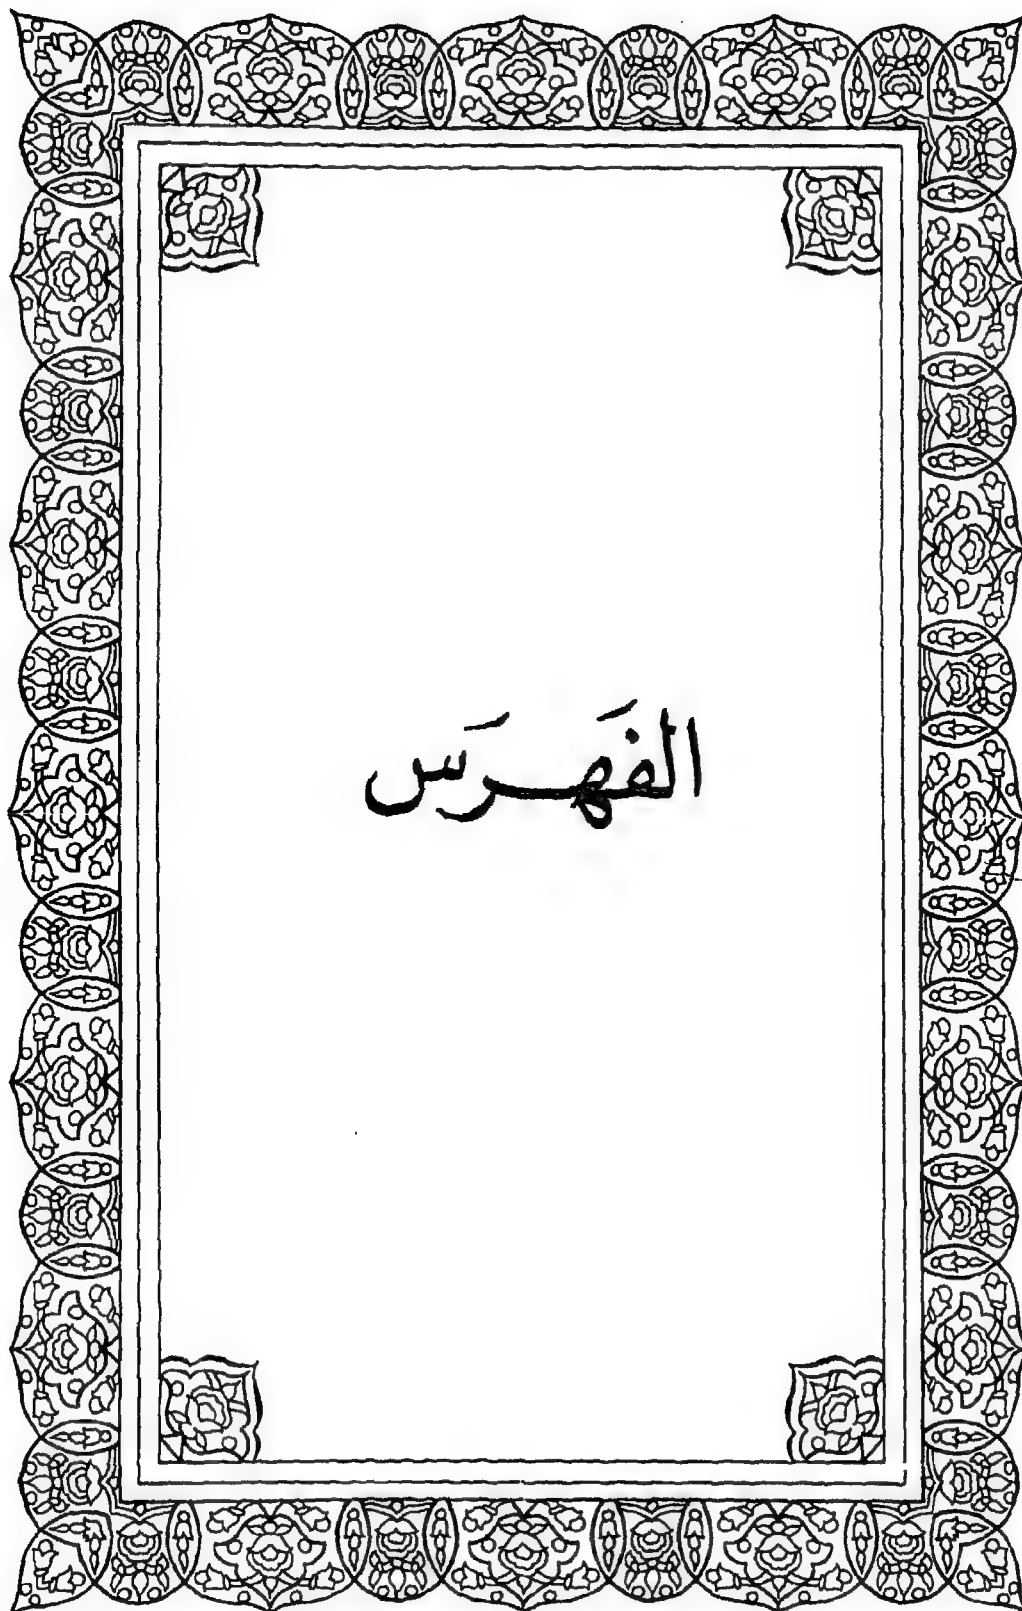 الفَهَرَس